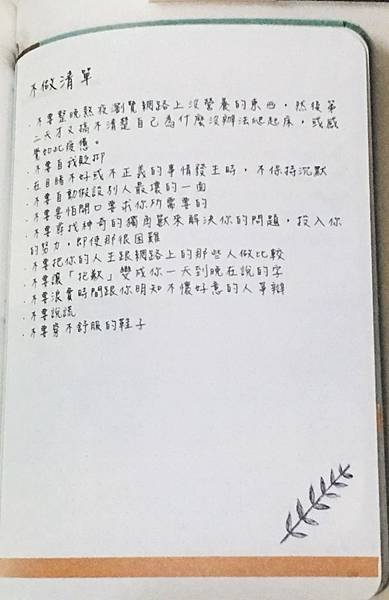 不做清單
·不要整晚熬夜瀏覽網路上沒營養的東西，然後第
二天才又搞不清楚自己為什麼沒辦法爬起床，或感
覺如此疲憊。
·不要自我貶抑
·在目睹不好或不正義的事情發生時，不保持沉默
·不要自動假設別人最壞的一面
·不要害怕開口要求你所需要的
·不要尋找神奇的獨角獸來解決你的問題，投入你
的努力，即使那很困難
·不要把你的人生跟網路上的那些人做比較
·不要讓「抱歉」變成你一天到晚在說的字
·不要浪費時間跟你明知不懷好意的人爭辯
·不要說謊
·不要穿不舒服的鞋子